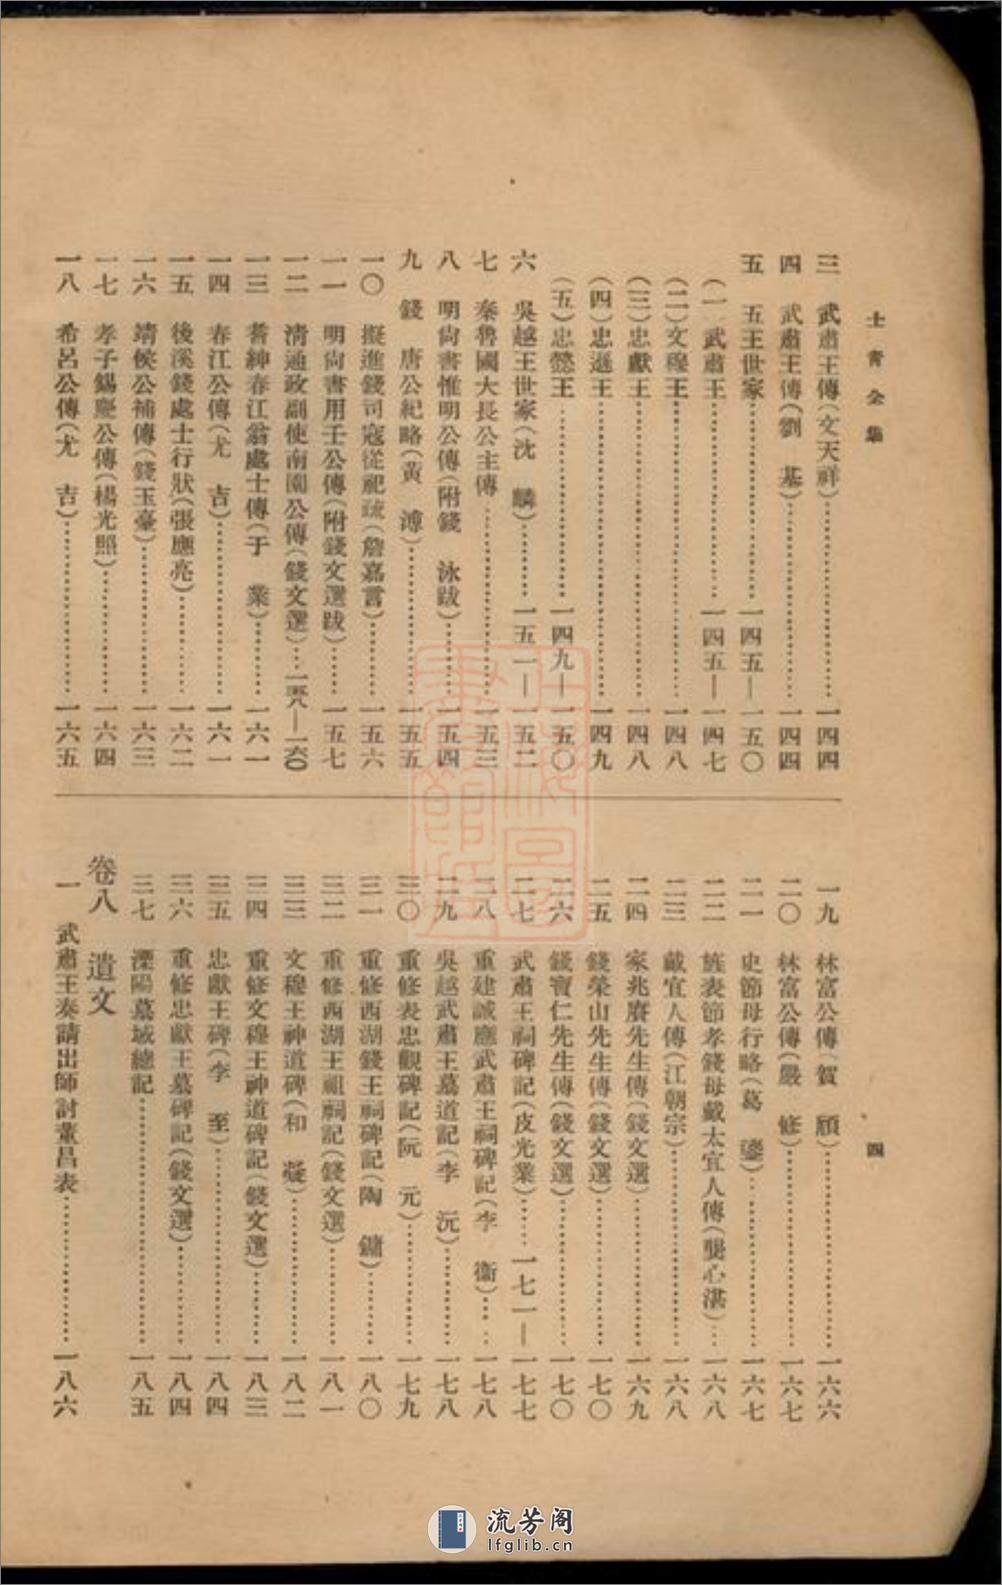 士青全集
四
三 武肅王傳(文天祥)………一四四
四 武肅王傳(劉 基)………一四四
五 五王世家………一四五—一五〇
(一)武肅王………一四五—一四七
(二)文穆王………一四八
(三)忠獻王………一四八
(四)忠遜王………一四九
(五)忠懿王………一四九—一五〇
六 吳越王世家(沈 麟)………一五一—一五二
七 秦魯國大長公主傳………一五三
八 明尙書惟明公傳(附錢 泳跋)………一五四
九 錢 唐公紀略(黃 溥)………一五五
一〇 擬進錢司寇從祀疏(詹嘉言)………一五六
一一 明尙書用壬公傳(附錢文選跋)………一五七
一二 淸通政副使南園公傳(錢文選)…一五八—一六〇
一三 耆紳春江翁處士傳(于 業)………一六一
一四 春江公傳(尤 吉)………一六一
一五 後溪錢處士行狀(張應亮)………一六二
一六 靖侯公補傳(錢玉臺)………一六三
一七 孝子錫慶公傳(楊光照)………一六四
一八 希呂公傳(尤 吉)………一六五
一九 林富公傳(賀 頎)………一六六
二〇 林富公傳(嚴 修)………一六七
二一 史節母行略(葛 )………一六七
二二 旌表節孝錢母戴太宜人傳(龔心湛)…一六八
二三 戴宜人傳(江朝宗)………一六八
二四 家兆賡先生傳(錢文選)………一六九
二五 錢榮山先生傳(錢文選)………一七〇
二六 錢寶仁先生傳(錢文選)………一七〇
二七 武肅王祠碑記(皮光業)……一七一—一七七
二八 重建誠應武肅王祠碑記(李 衞)……一七八
二九 吳越武肅王墓道記(李 沅)………一七八
三〇 重修表忠觀碑記(阮 元)………一七九
三一 重修西湖錢王祠碑記(陶 鏞)………一八〇
三二 重修西湖王祖祠記(錢文選)………一八一
三三 文穆王神道碑(和 凝)………一八二
三四 重修文穆王神道碑記(錢文選)………一八三
三五 忠獻王碑(李 至)………一八四
三六 重修忠獻王墓碑記(錢文選)………一八四
三七 溧陽墓域總記………一八五
卷八 遺文
一 武肅王奏請出師討董昌表………一八六
流芳阁
lfglib.cn